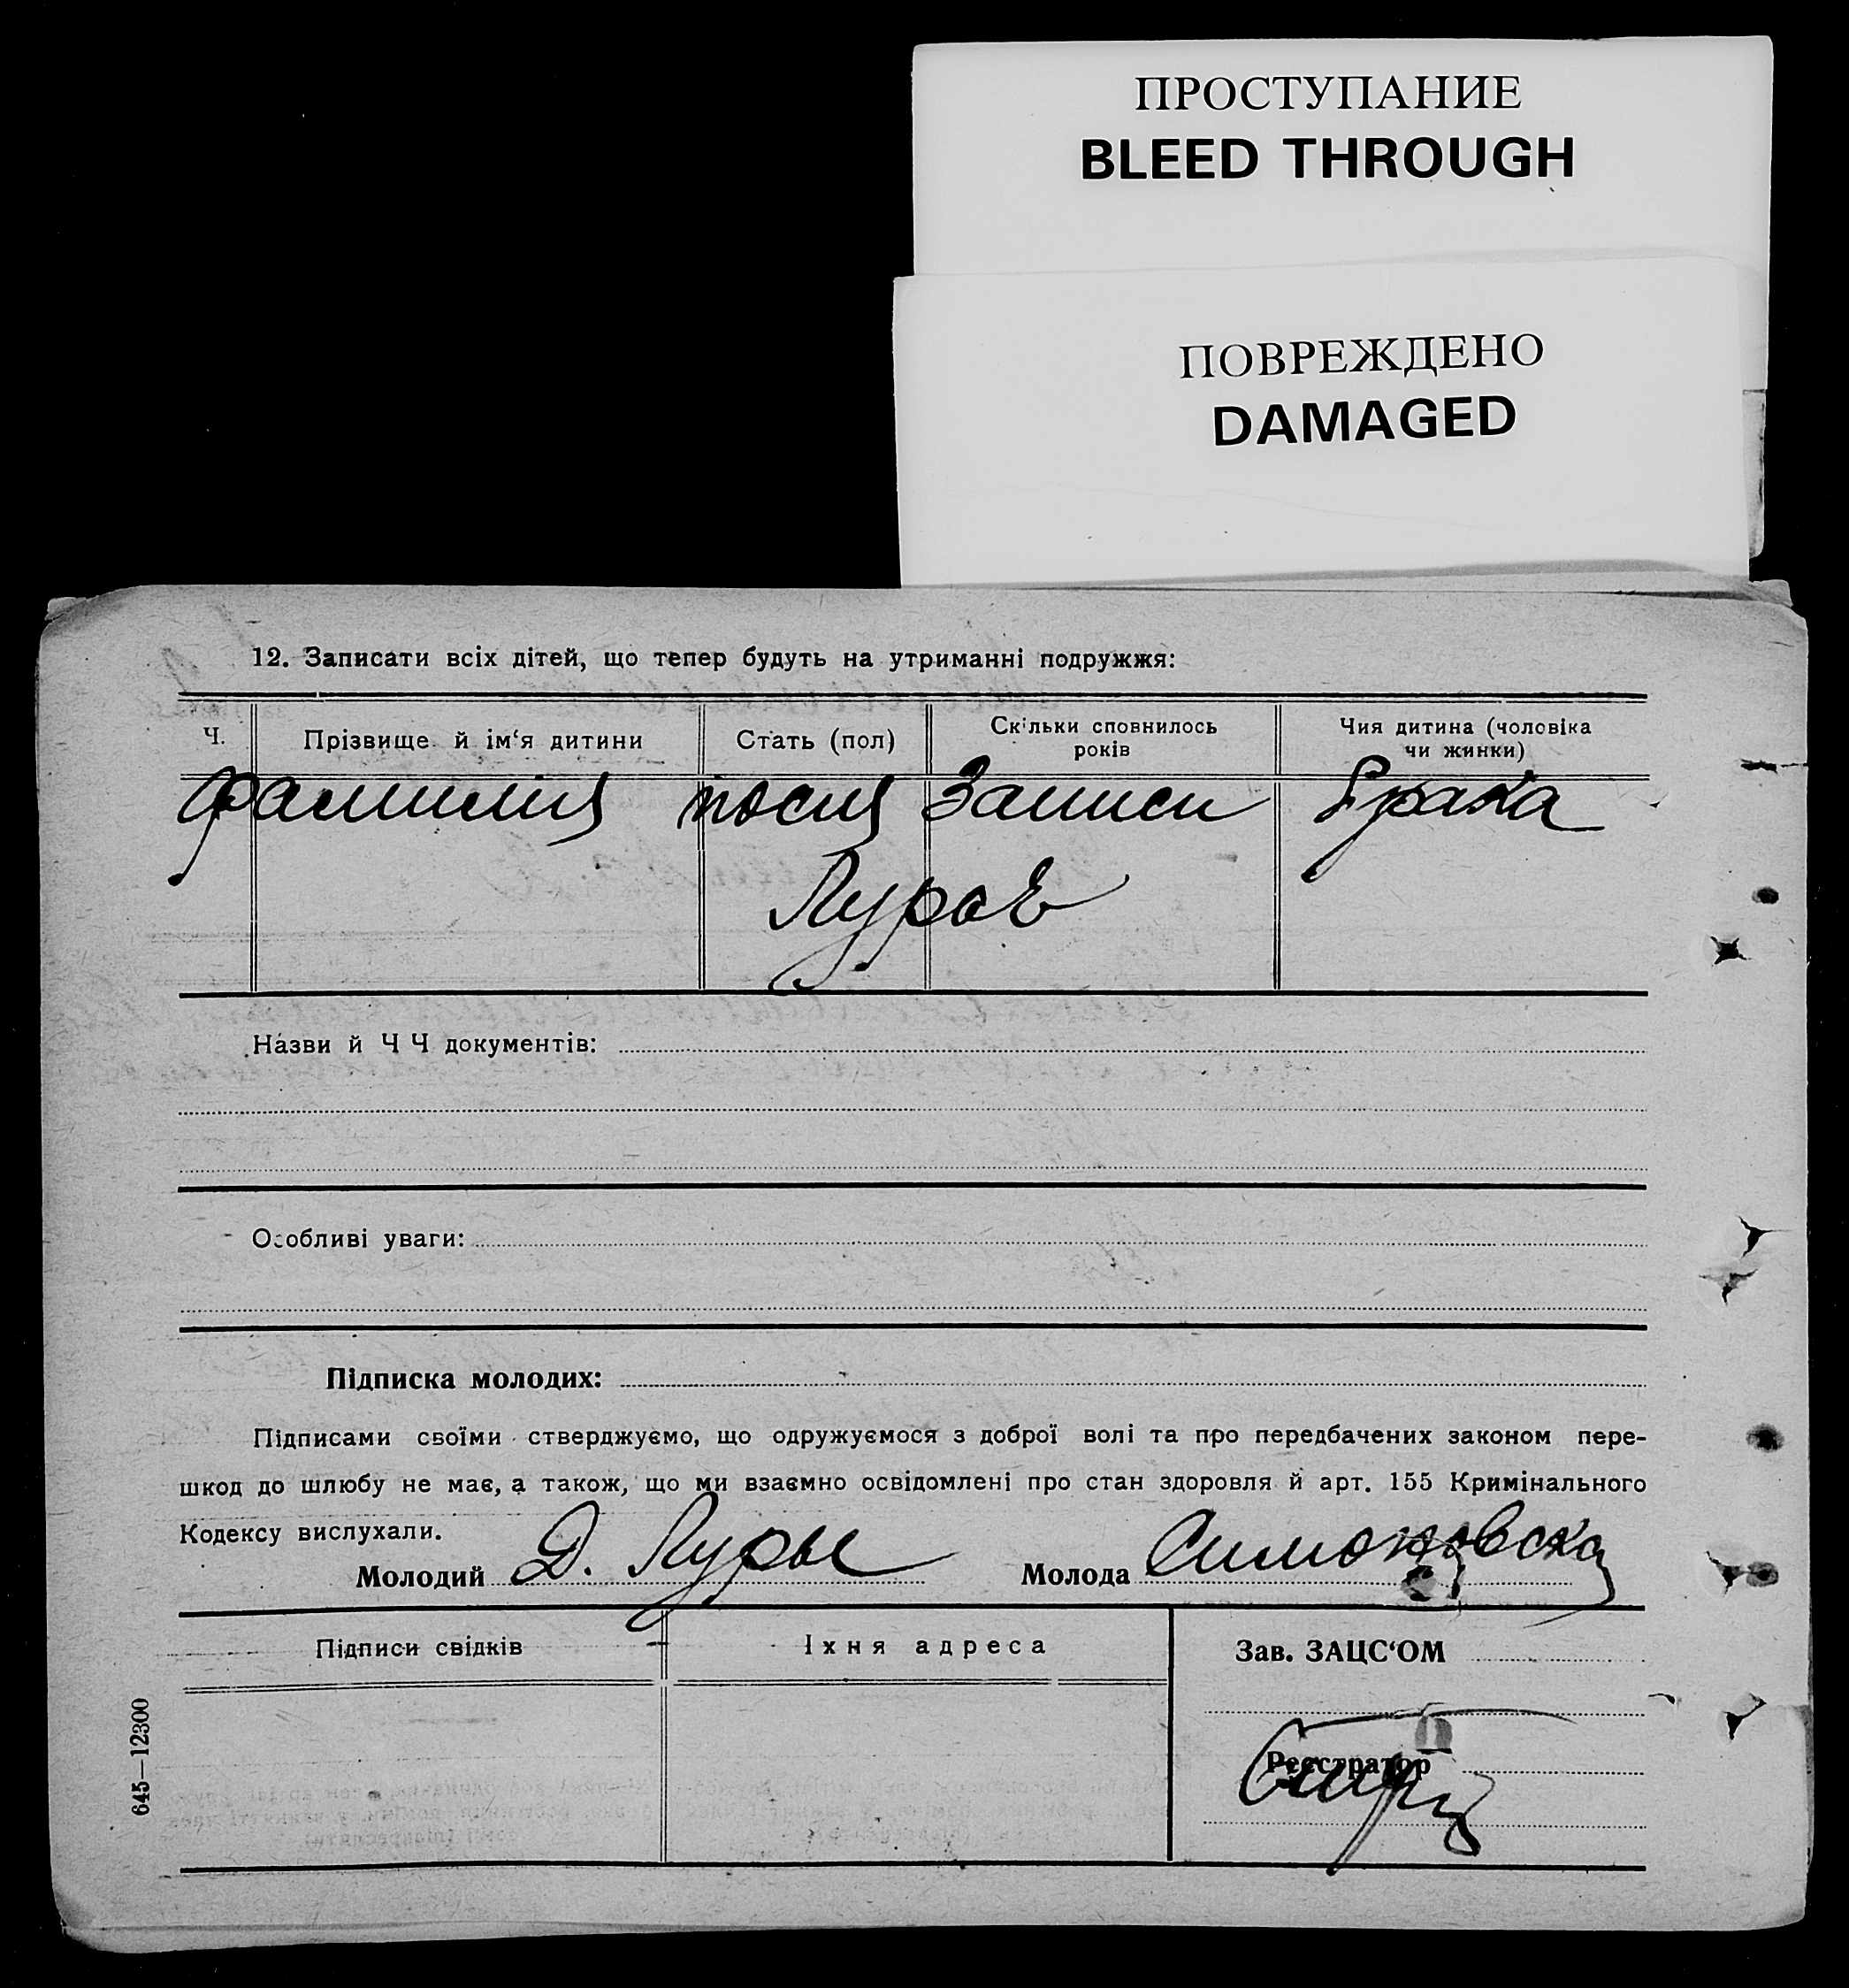 ПРОСТУПАНИЕ
BLEED THROUGH
ПОВРЕЖДЕНО
DAMAGED
12. Записати всіх дітей, що тепер будуть на утриманні подружжя:
Ч. Прізвище й ім‘я дитини Стать (пол) Скільки сповнилось років Чия дитина (чоловіка чи жинки)
фамилия после записи брака
Назви й Ч Ч документів:
Особливі уваги:
Підписка молодих:
Підписами своїми стверджуємо, що одружуємося з доброї волі та про передбачених законом пере-
шкод до шлюбу не має, а також, що ми взаємно освідомлені про стан здоровля й арт. 155 Кримінального
Кодексу вислухали.
Молодий Д. Молода Симоновска
Підписи свідків Іхня адреса Зав. ЗАЦС‘ОМ
Реєстратор
645—12300